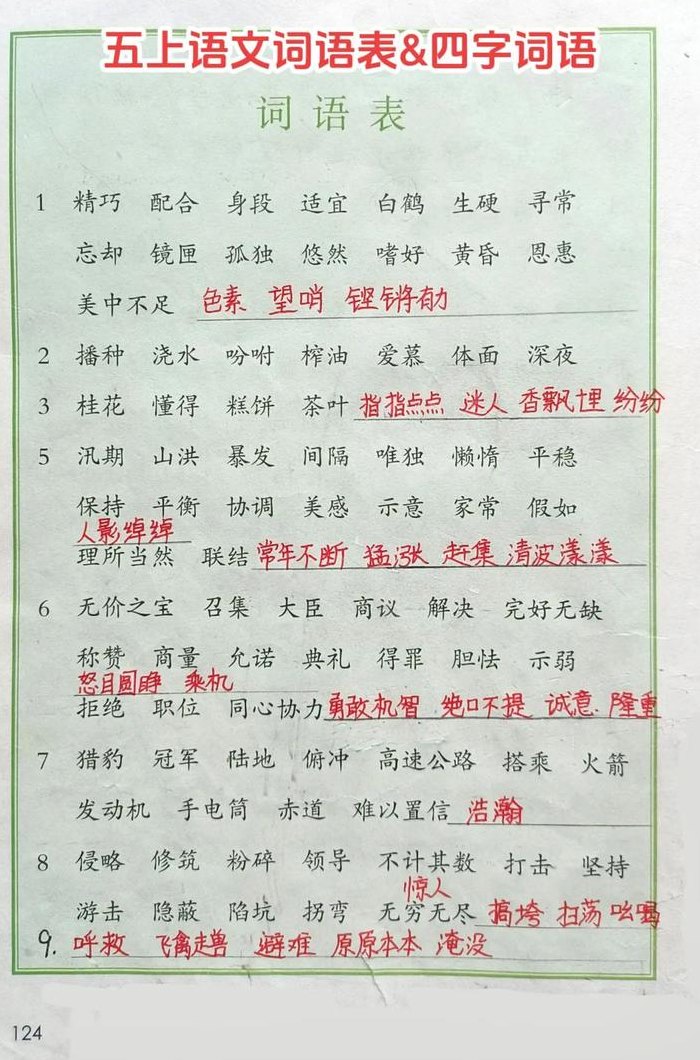 五上语文词语表&四字词语
词语表
1 精巧 配合 身段 适宜 白鹤 生硬 寻常
忘却 镜匣 孤独 悠然 嗜好 黄昏 恩惠
美中不足 色素 望哨 铿锵有劲
2 播种 浇水 吩咐 榨油 爱慕 体面 深夜
3 桂花 懂得 糕饼 茶叶 指指点点 迷人 香飘十里 纷纷
5 汛期 山洪 暴发 间隔 唯独 懒惰 平稳
保持 平衡 协调 美感 示意 家常 假如
人影绰绰
理所当然 联结 常年不断 猛涨 赶集 清波漾漾
6 无价之宝 召集 大臣 商议 解决 完好无缺
称赞 商量 允诺 典礼 得罪 胆怯 示弱
怒目圆睁 乘机
拒绝 职位 同心协力 勇敢机智 绝口不提 诚意 隆重
7 猎豹 冠军 陆地 俯冲 高速公路 搭乘 火箭
发动机 手电筒 赤道 难以置信 浩瀚
8 侵略 修筑 粉碎 领导 不计其数 打击 坚持
惊人
游击 隐蔽 陷坑 拐弯 无穷无尽 搞垮 扫荡 吆喝
9. 呼救 飞禽走兽 避难 原原本本 淹没
124